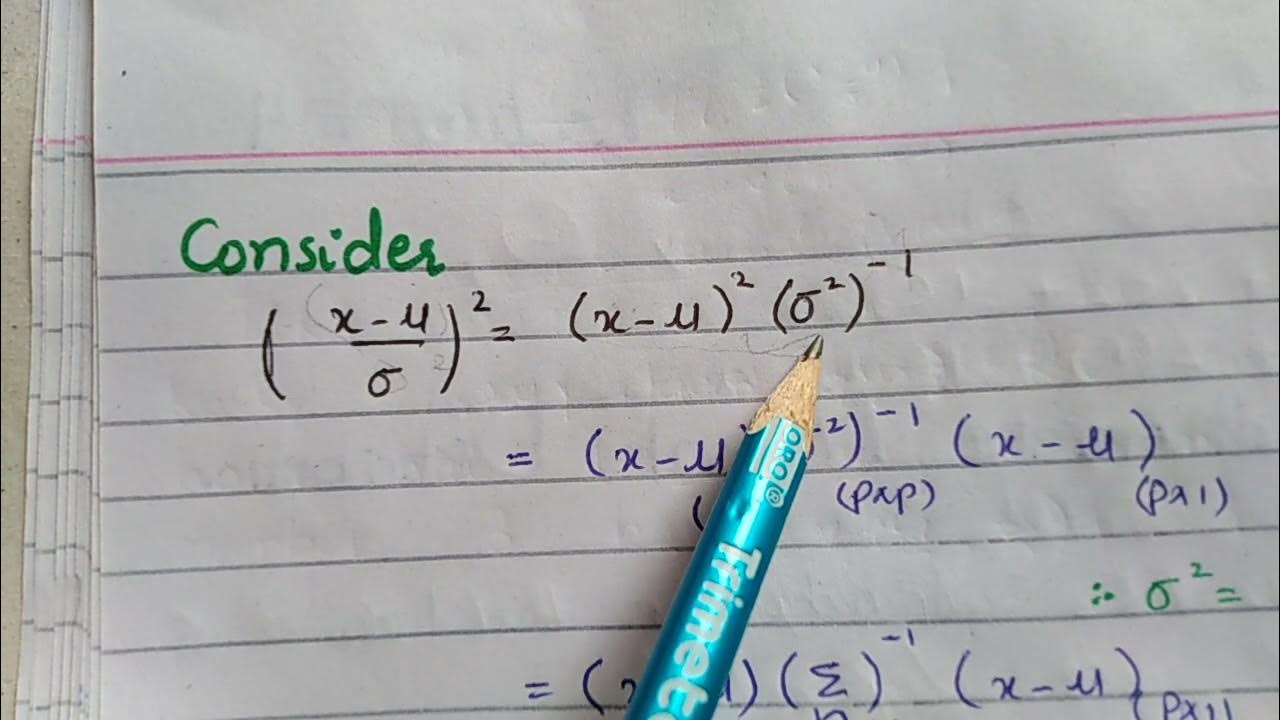 Consider
(x-μ/σ)² = (x-μ)² (σ²)⁻¹
= (x-μ ²)⁻¹ (x-μ)
(pxp) (px1)
∴ σ² =
= ( ) (Σ/n)⁻¹ (x-μ)
px1)
ORO®
Trimet